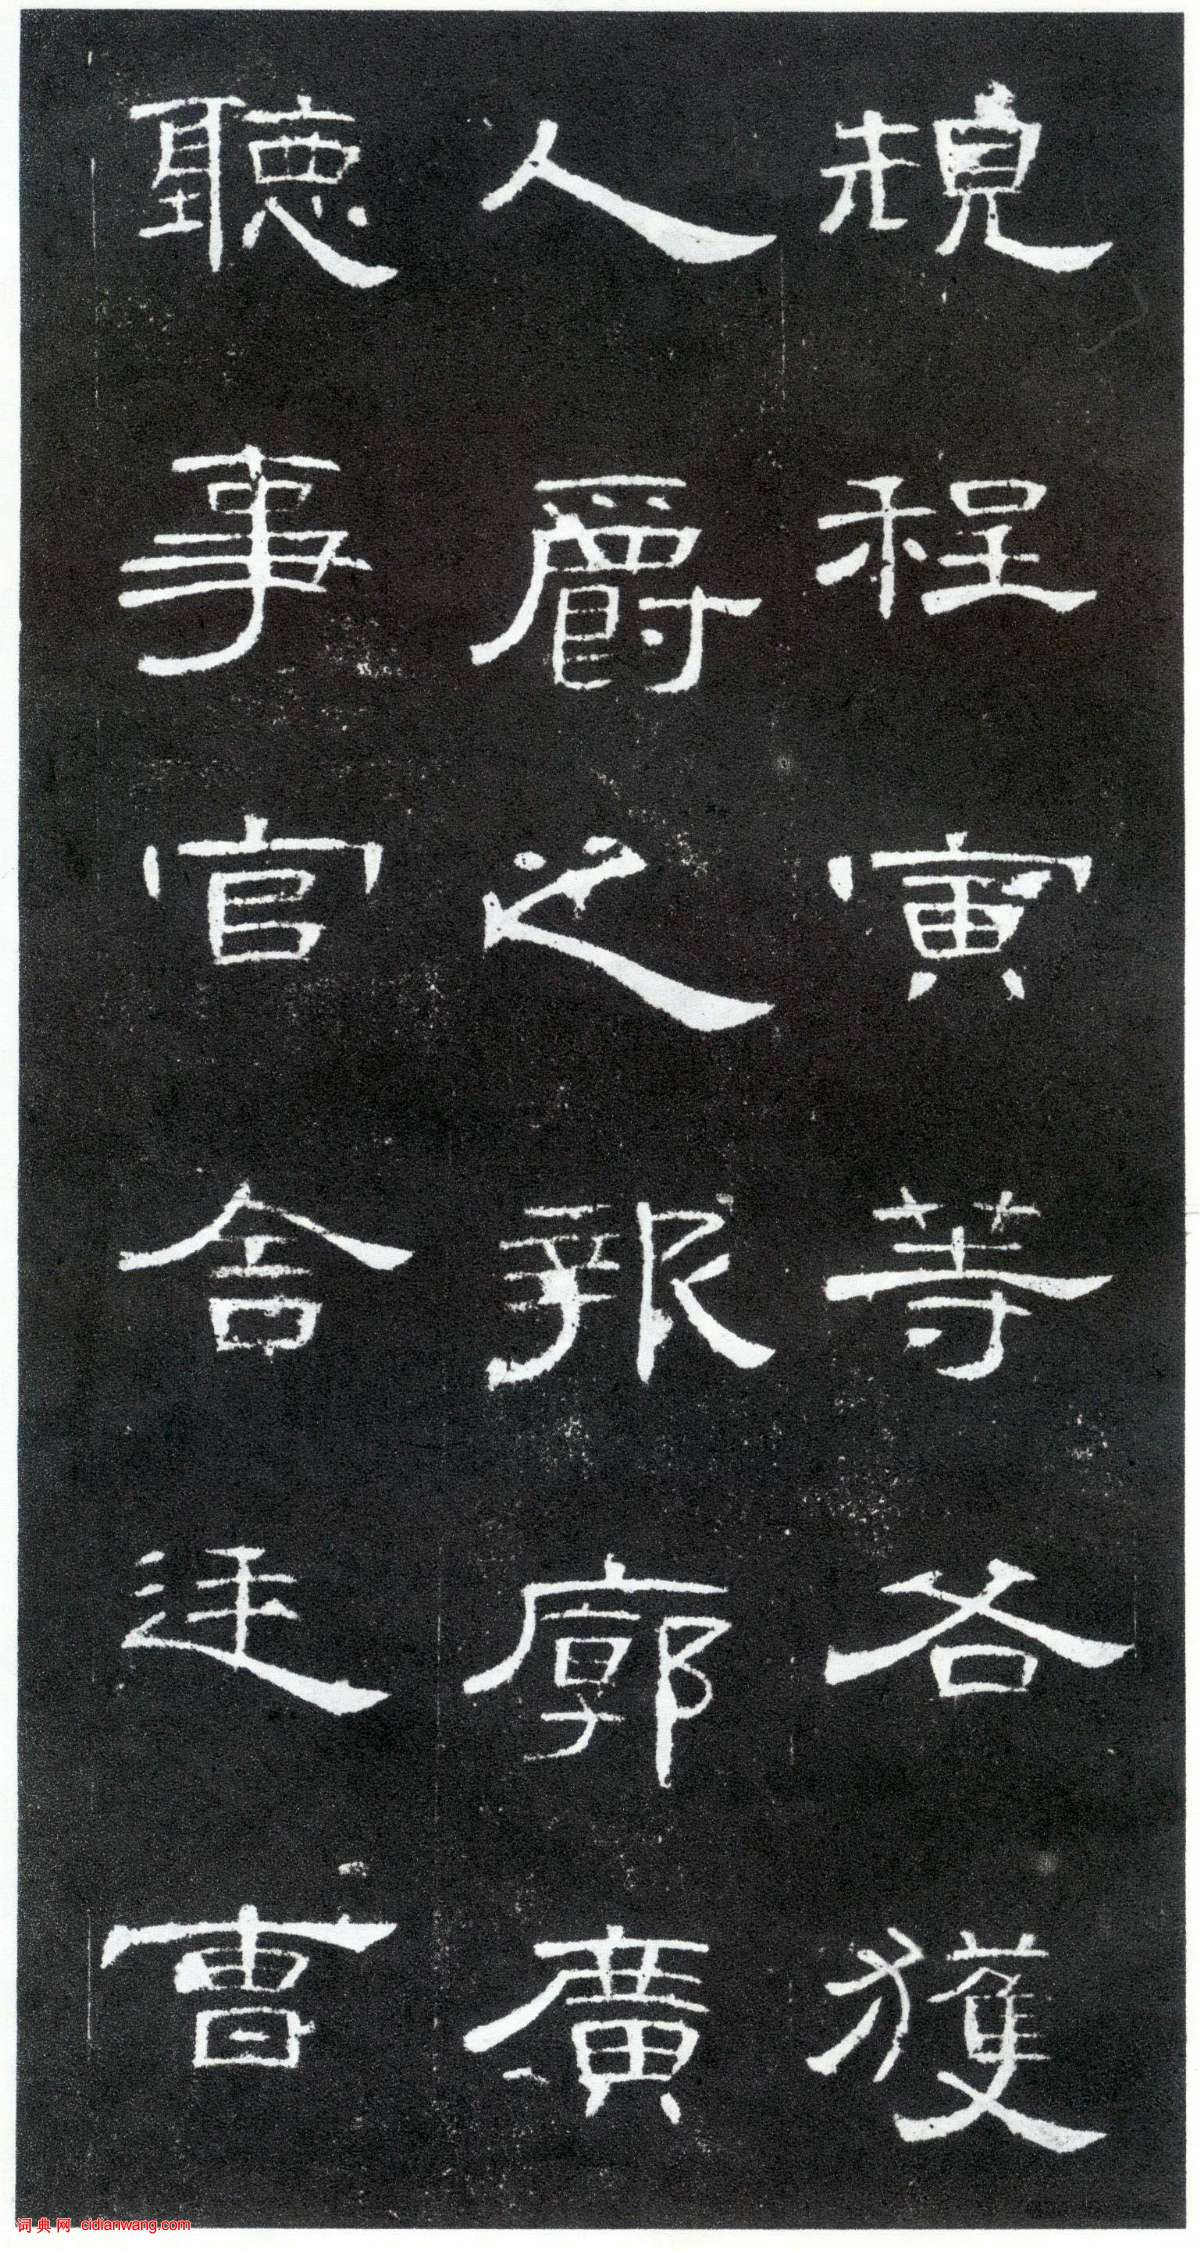 規程寅等各獲
人爵之報廓廣
聽事官舍廷曹
词典网 cidianwang.com